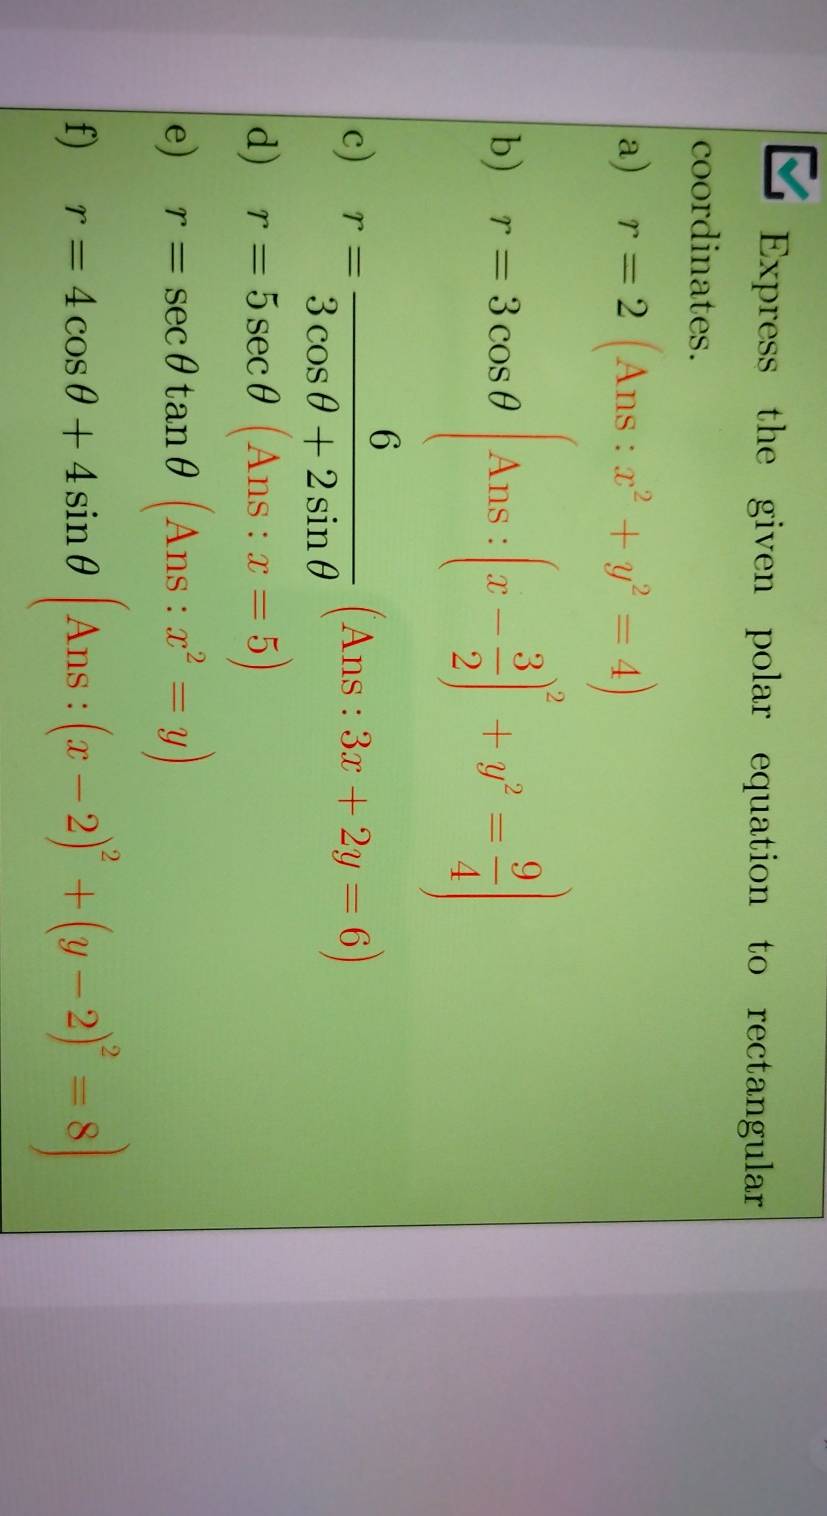 Express the given polar equation to rectangular
coordinates.
a) r = 2 (Ans : x² + y² = 4)
b) r = 3 cos θ (Ans : (x − 3/2)² + y² = 9/4)
c) r = 6/(3 cos θ + 2 sin θ) (Ans : 3x + 2y = 6)
d) r = 5 sec θ (Ans : x = 5)
e) r = sec θ tan θ (Ans : x² = y)
f) r = 4 cos θ + 4 sin θ (Ans : (x − 2)² + (y − 2)² = 8)